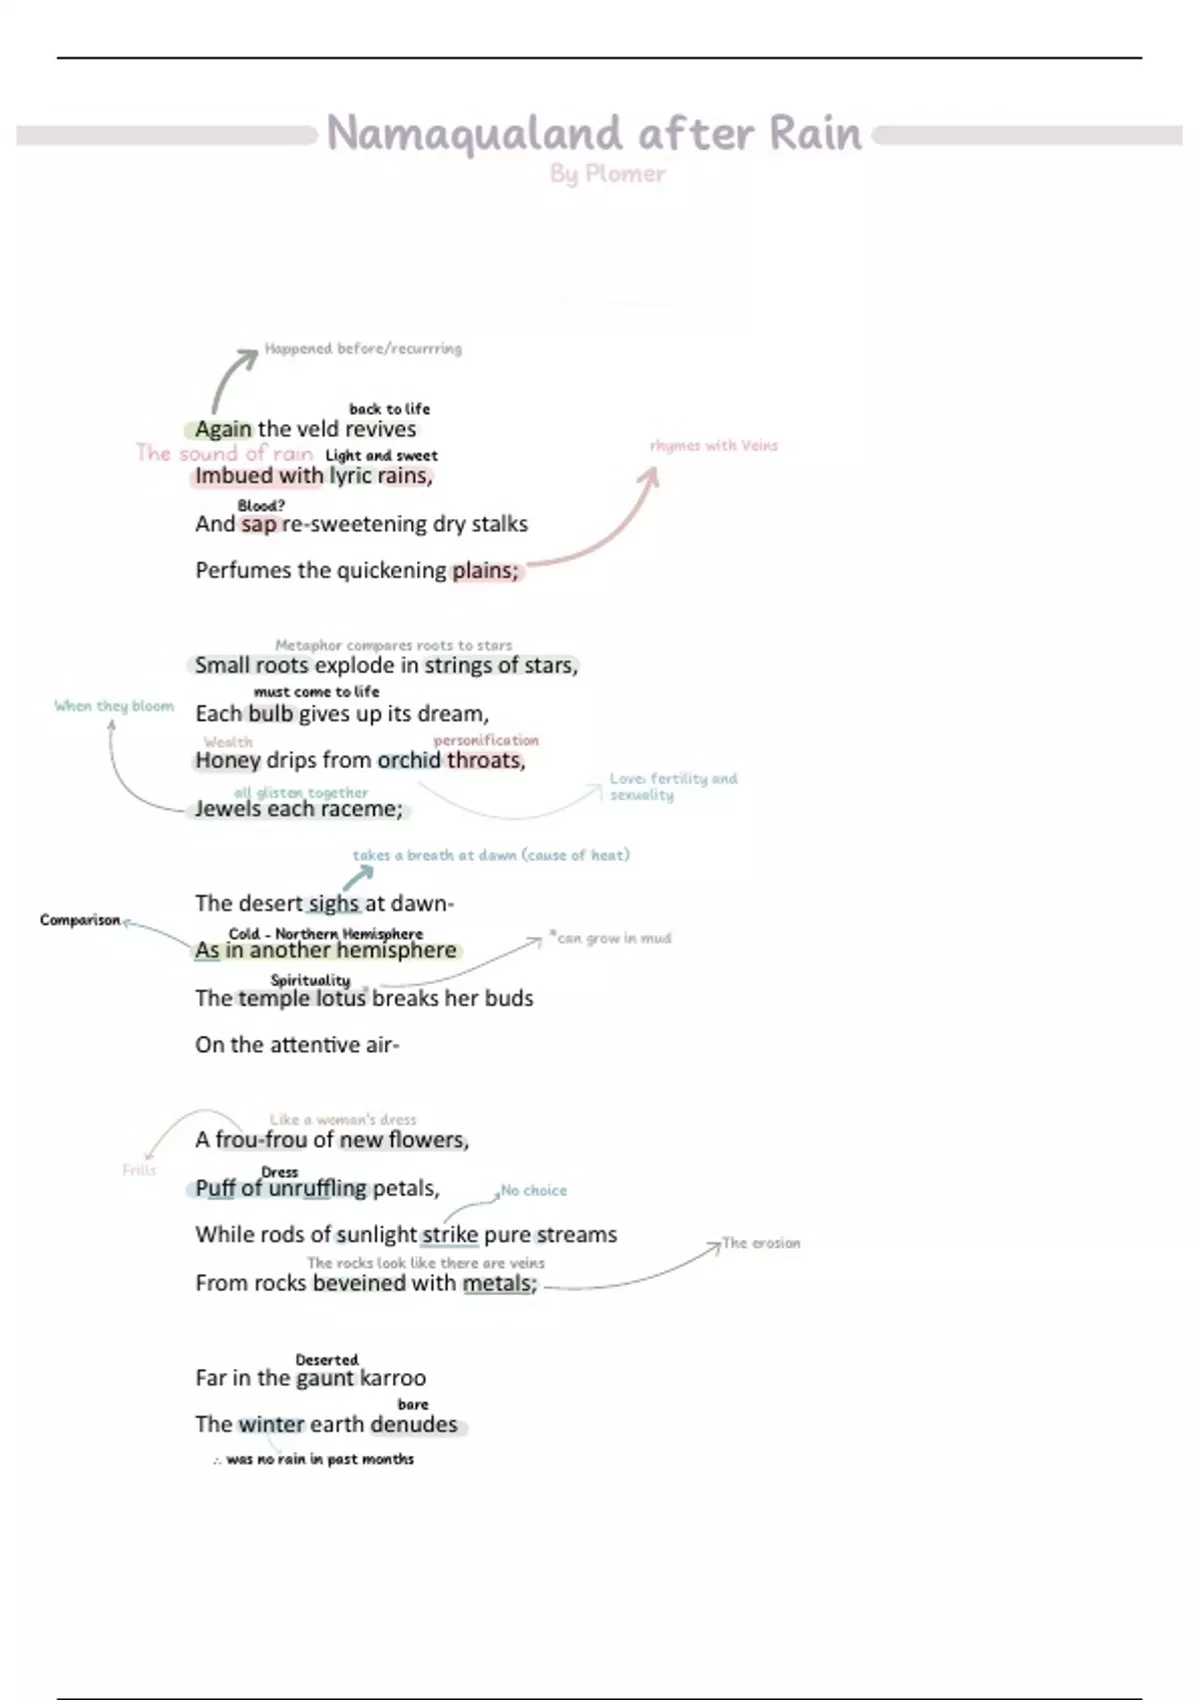 Namaqualand after Rain
By Plomer
Happened before/recurrring
back to life
Again the veld revives
rhymes with Veins
The sound of rain Light and sweet
Imbued with lyric rains,
Blood?
And sap re-sweetening dry stalks
Perfumes the quickening plains;
Metaphor compares roots to stars
Small roots explode in strings of stars,
must come to life
When they bloom
Each bulb gives up its dream,
Wealth personification
Honey drips from orchid throats,
Love, fertility and
sexuality
all glisten together
Jewels each raceme;
takes a breath at dawn (cause of heat)
The desert sighs at dawn-
Comparison
Cold - Northern Hemisphere
*can grow in mud
As in another hemisphere
Spirituality
The temple lotus breaks her buds
On the attentive air-
Like a woman's dress
A frou-frou of new flowers,
Frills
Dress
Puff of unruffling petals,
No choice
While rods of sunlight strike pure streams
The erosion
The rocks look like there are veins
From rocks beveined with metals;
Deserted
Far in the gaunt karroo
bare
The winter earth denudes
∴ was no rain in past months